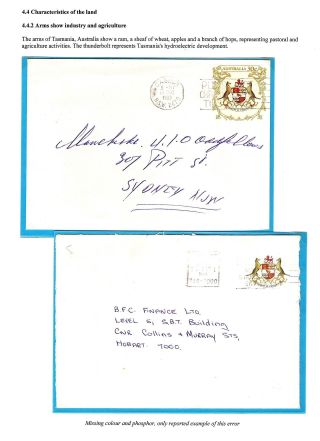 4.4 Characteristics of the land
4.4.2 Arms show industry and agriculture
The arms of Tasmania, Australia show a ram, a sheaf of wheat, apples and a branch of hops, representing pastoral and
agriculture activities. The thunderbolt represents Tasmania's hydroelectric development.
AUSTRALIA
Manchester
307 PITT St.
SYDNEY NSW
B.F.C. FINANCE LTD
LEVEL 5, S.B.T. Building
CNR Collins & Murray STS,
HOBART. 7000.
Missing colour and phosphor, only reported example of this error